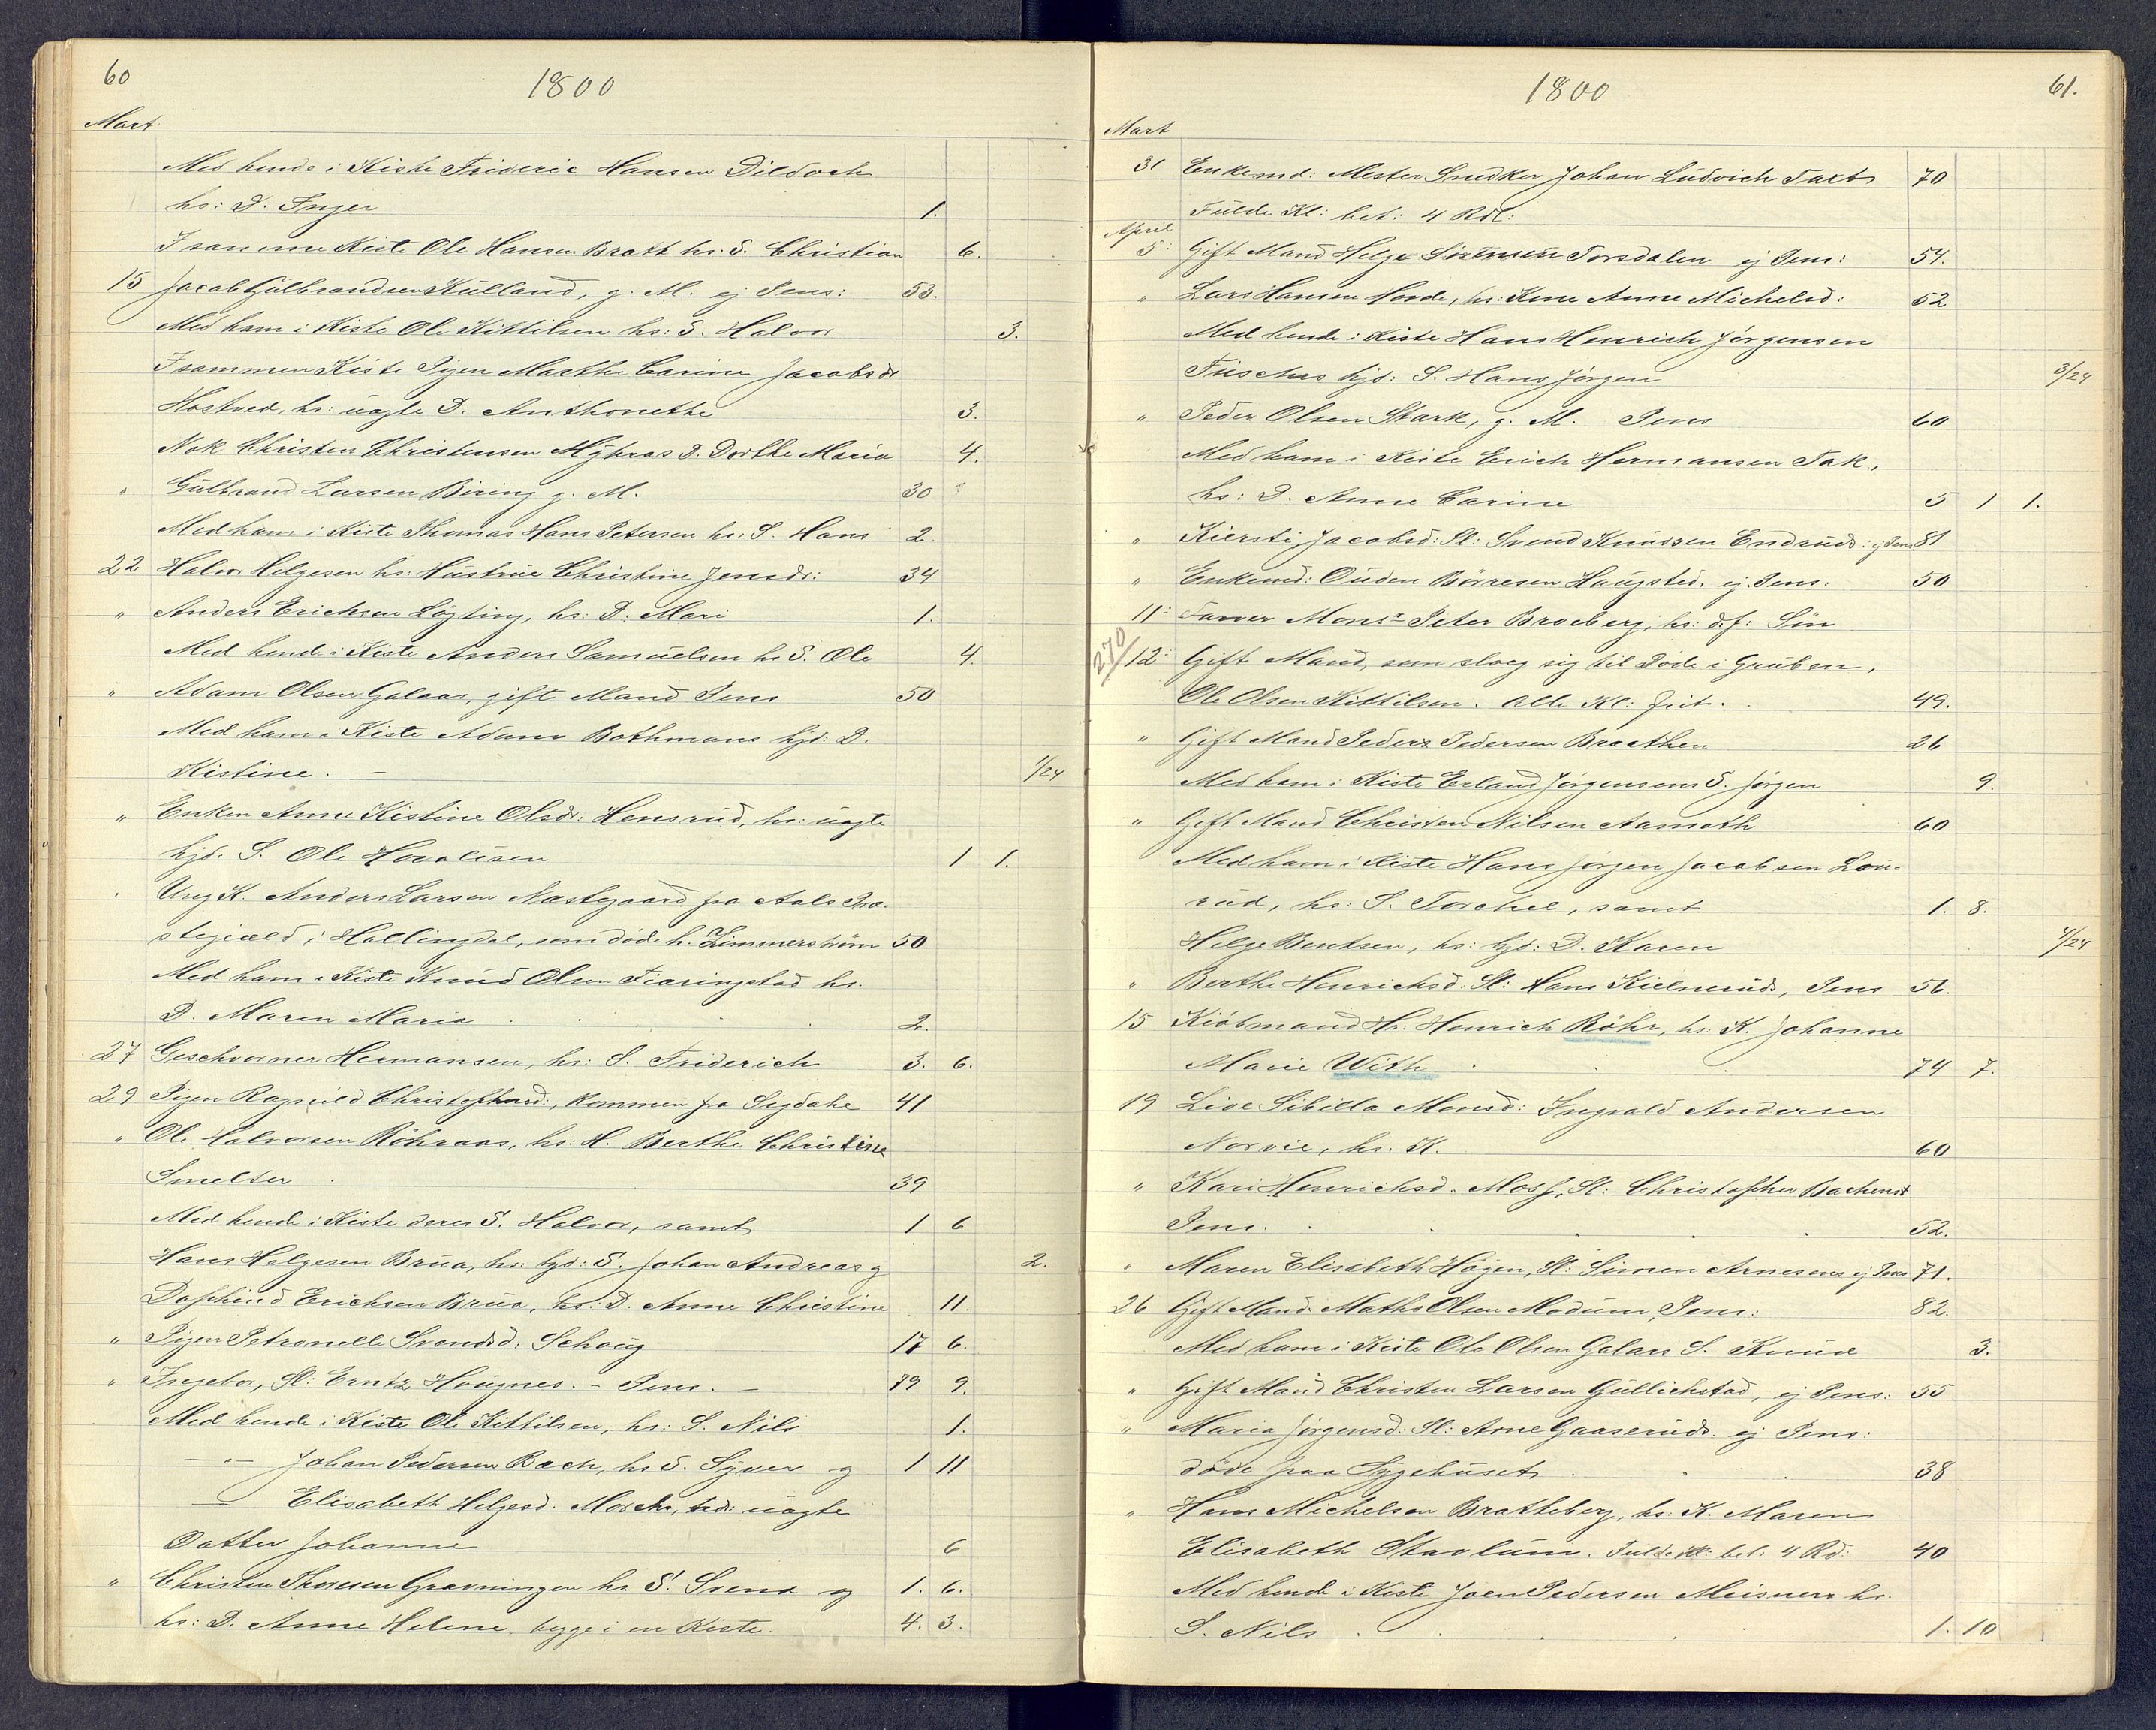 60
1800
Mart.
Med hende i Kiste Frideric Hansen Dildoch
hs: D. Inger 1.
I samme Kiste Ole Hansen Bratt hs: S. Christian 6.
15 Jacob Gülbrandsen Külland, g. M. ej Pens: 53.
Med ham i Kiste Ole Kittilsen hs: S. Halvor 3.
I sammen Kiste Pigen Marthe Carine Jacobsdr
Hostved, hs: üagte D. Anthonethe 3.
Nok Christen Christensen Myhras D. Dorthe Maria 4.
" Gülbrand Larsen Büring g. M. 30
Med ham i Kiste Thomas Hans Petersen hs: S. Hans 2.
22 Halvor Helgesen hs: Hüstrüe Christine Jensdr: 34
" Anders Erichsen Løgting, hs: D. Mari 1.
Med hende i Kiste Anders Samüelsen hs S. Ole 4.
" Adam Olsen Galaas, gift Mand Pens 50
Med ham i Kiste Adam Bothmans hjd: D.
Kistine. — 1/24
" Enken Anne Kistine Olsdr: Hensrüd, hs: üagte
hjd. S. Ole Hovalisen 1 1.
Ung K. Anders Larsen Næstegaard fra Aals Præ-
stegiæld i Hallingdal, som døde h. Zimmerstrøm 50
Med ham i Kiste Knüd Olsen Fiæringstad hs.
D. Maren Maria 2.
27 Geschvorner Hermansen, hs: S. Friderich 3. 6.
29 Pigen Ragnild Christophersd:, kommen fra Sigdahl 41
" Ole Halvorsen Röhraas, hs: H. Berthe Christine
Smelter 39
Med hende i Kiste deres S. Halvor, samt 1 6
Hans Helgesen Brüa, hs: hjd: S. Johan Andreas g 2.
Daphind Erichsen Brüa, hs: D. Anne Christine 11.
" Pigen Petronelle Svendsd: Schoüg 17 6.
" Ingebor, Sl: Erntz Houganes. - Pens. - 89 9.
Med hende i Kiste Ole Kittilsen, hs: S. Nils 1.
—"— Johan Pedersen Bach, hs S. Syver g 1 11
— Elisabeth Helgesd. Morch, hds üagte
Datter Johanne 6
" Christen Thoresen Gravningen hs S. Svend og 1. 6.
hs: D. Anne Helene begge i en Kiste. 4. 3.
1800
61.
Mart
31 Enkemd: Mester Snedker Johan Lüdvich Taxt 70
Fulde Kl: bet: 4 Rdl:
April
5: Gift Mand Helge Sørensen Torsdalen ej Pens: 54.
" Lars Hansen Hovde, hs: Kone Anne Michelsd: 52
Med hende i Kiste Hans Henrich Jörgensen
Füschs hjd: S. Hans Jörgen 3/24
" Peder Olsen Stark, g. M. Pens 60
Med ham i Kiste Erich Hermansen Tak,
hs: D. Anne Carine 5 1 1.
" Kiersti Jacobsd: Sl: Svend Knüdsen Endrüds: ej Pens 81
" Enkemd: Ouden Börresen Haügsted. ej Pens: 50
11: Farver Monsr Peter Broeberg, hs: d.f: Søn
270
12: Gift Mand, som slog sig til Döde i Grüben,
Ole Olsen Kittilsen. Alle Kl: frit. 49.
" Gift Mand Peder Pedersen Braathen 26
Med ham i Kiste Erland Jörgensens S. Jörgen 9.
" Gift Mand Christen Nilsen Aamoth 60
Med ham i Kiste Hans Jörgen Jacobsen Lov-
rüd, hs: S. Torchel, samt 1. 8.
Helge Bentsen, hs: hjd: D. Karen 4/24
" Berthe Henrichsd. Sl: Hans Kielnerüds, Pens 56.
15 Kiöbmand Hr. Henrich Röhr, hs. K. Johanne
Marie With 74 7.
19 Live Sibilla Monsd: Ingvald Andersen
Norvie, hs. K. 60
" Kari Henrichsd. Moss, Sl: Christopher Bachens
Pens. 52.
" Maren Elisabeth Högen, Sl: Simen Arnesens ej Pens 71.
26 Gift Mand Maths Olsen Modum, Pens: 82.
Med ham i Kiste Ole Olsen Galaas S. Knüd 3.
" Gift Mand Christen Larsen Güllichstad, ej Pens: 55
" Maria Jörgensd: Sl: Arne Gaaserüds. ej Pens:
døde paa Sygehüset 38
" Hans Michelsen Bratteberg, hs: K. Maren
Elisabeth Stavlum. Fulde Kl: bet. 4 Rd: 40
Med hende i Kiste Joen Pedersen Meisners hs.
S. Nils 1. 10